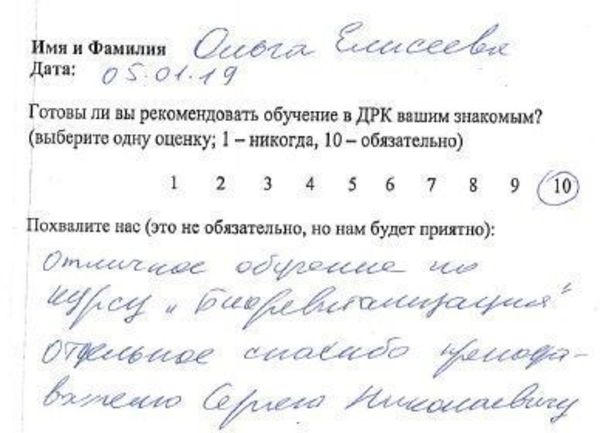 Имя и Фамилия Ольга Елисеева
Дата: 05.01.19
Готовы ли вы рекомендовать обучение в ДРК вашим знакомым?
(выберите одну оценку; 1 – никогда, 10 – обязательно)
1 2 3 4 5 6 7 8 9 10
Похвалите нас (это не обязательно, но нам будет приятно):
Отличное обучение по
курсу „Биоревитализация"
Отдельное спасибо препода-
вателю Сергею Николаевичу